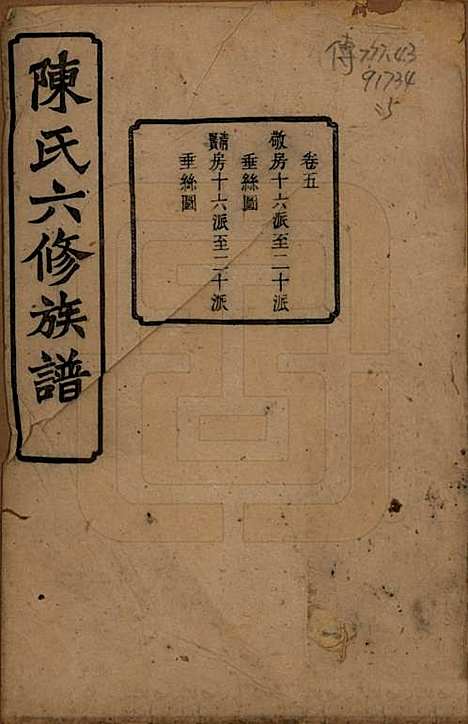 陳氏六修族譜
卷五
敬房十六派至二十派
垂絲圖
房十六派至二十派
垂絲圖
傳 777.43
91734
:5